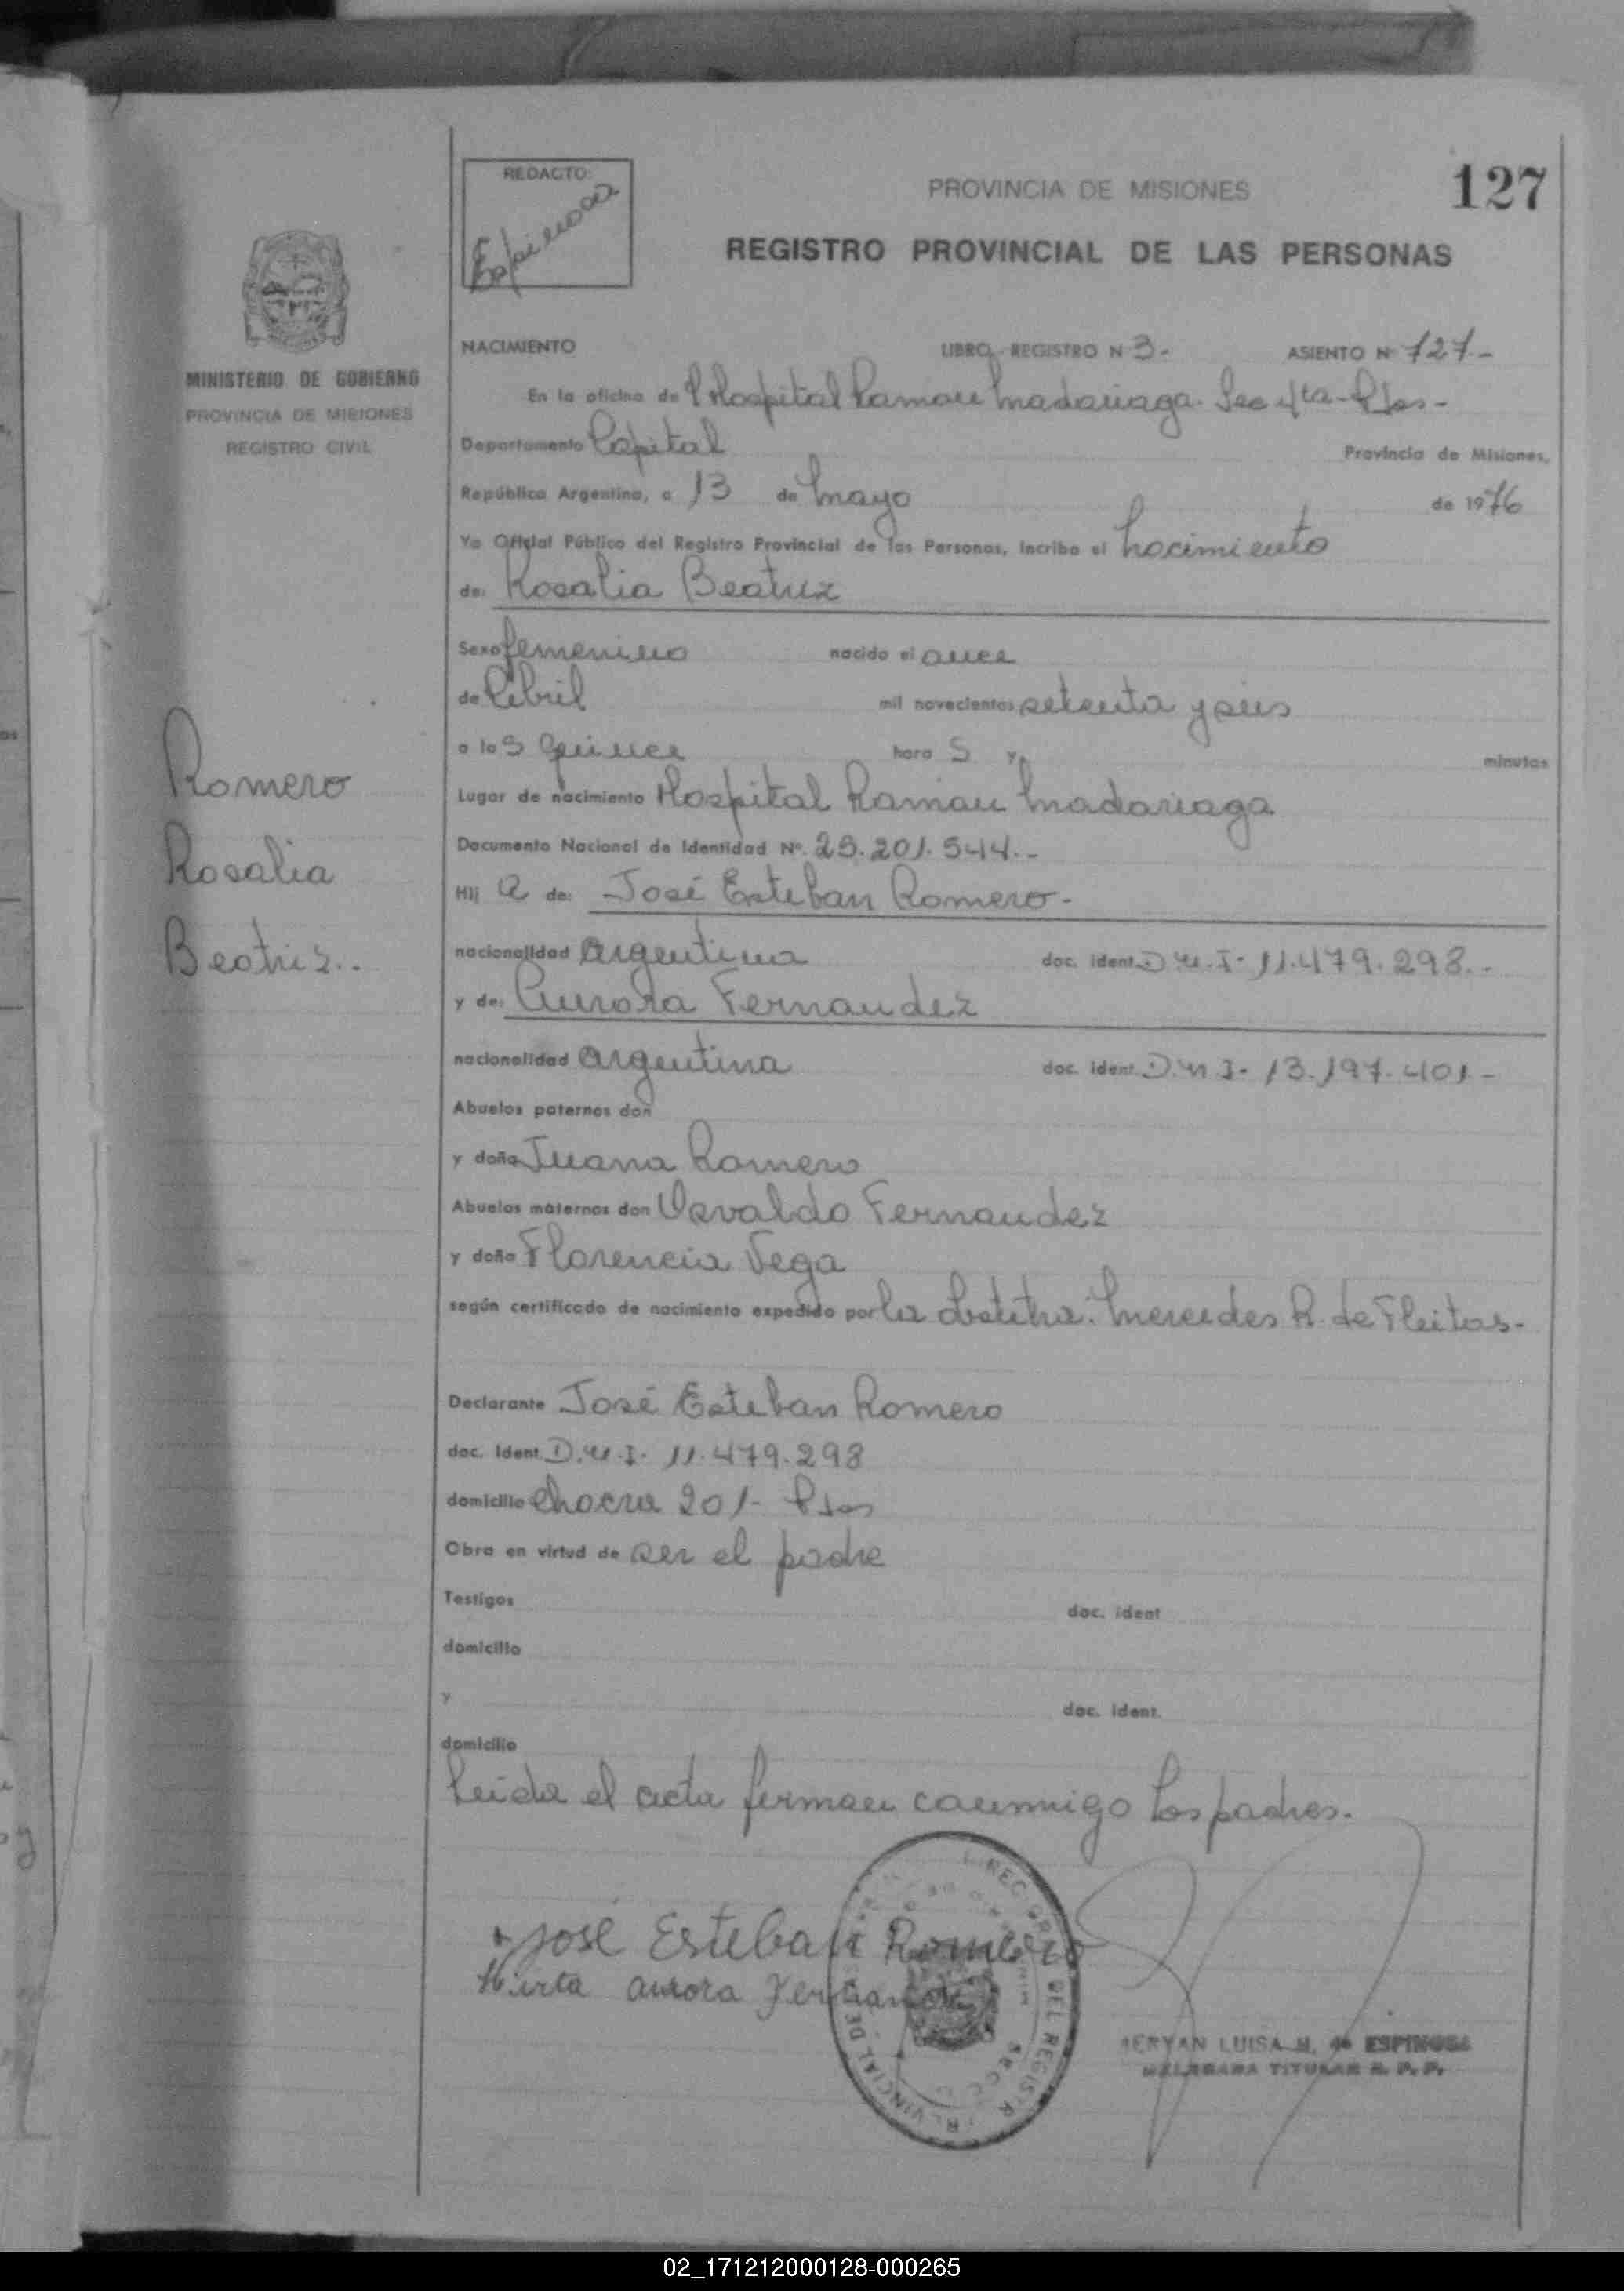 REDACTO:
Espinosa
PROVINCIA DE MISIONES
127
REGISTRO PROVINCIAL DE LAS PERSONAS
MINISTERIO DE GOBIERNO
PROVINCIA DE MISIONES
REGISTRO CIVIL
NACIMIENTO LIBRO - REGISTRO N 3- ASIENTO Nº 727-
En la oficina de Hospital Ramon Madariaga. Sec 4ta - Pdas-
Departamento Capital Provincia de Misiones,
República Argentina, a 13 de Mayo de 1976
Yo Oficial Público del Registro Provincial de las Personas, incribo el nacimiento
de: Rosalia Beatriz
Sexo femenino nacido el once
de Abril mil novecientos setenta y seis
a las quince hora s y minutos
Lugar de nacimiento Hospital Ramon Madariaga
Documento Nacional de Identidad Nº. 25.201.544.-
Hij a de: José Esteban Romero-
nacionalidad argentina doc. ident. D.N.I- 11.479.298.-
y de: Aurora Fernandez
nacionalidad argentina doc. ident. D.N.I- 13.197.401-
Abuelos paternos don
y doña Juana Romero
Abuelos maternos don Osvaldo Fernandez
y doña Florencia Vega
según certificado de nacimiento expedido por la Obstetra: Mercedes R. de Fleitas-
Declarante José Esteban Romero
doc. Ident. D.N.I- 11.479.298
domicilio Chacra 201- Pdas
Obra en virtud de ser el padre
Testigos doc. ident
domicilio
y doc. ident.
domicilio
Leida el acta firman conmigo los padres-
Romero
Rosalia
Beatriz..
José Esteban Romero
Mirta aurora Fernandez
MERYAN LUISA M. de ESPINOSA
DELEGADA TITULAR R. P. P.
02_171212000128-000265